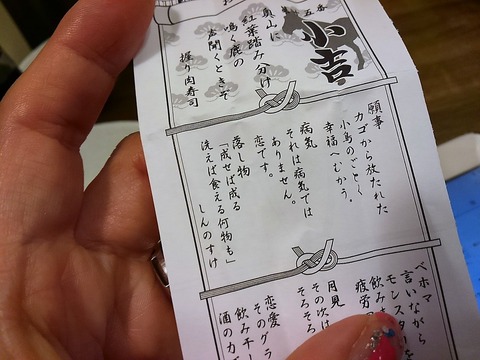 五番
小吉
奥山に
紅葉踏み分け
鳴く鹿の
声聞くときぞ
握り肉寿司
願事
カゴから放たれた
小鳥のごとく
幸福へむかう。
病気
それは病気では
ありません。
恋です。
落し物
「成せば成る
洗えば食える何物も」
しんのすけ
ベホマ
言いながら
モンスターを
飲み
疲労
月見
その次は
そろそろ
恋愛
そのグラ
飲み干し
酒の力